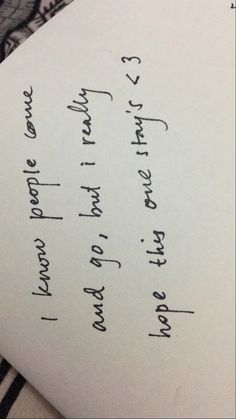 I know people come
and go, but i really
hope this one stay's <3